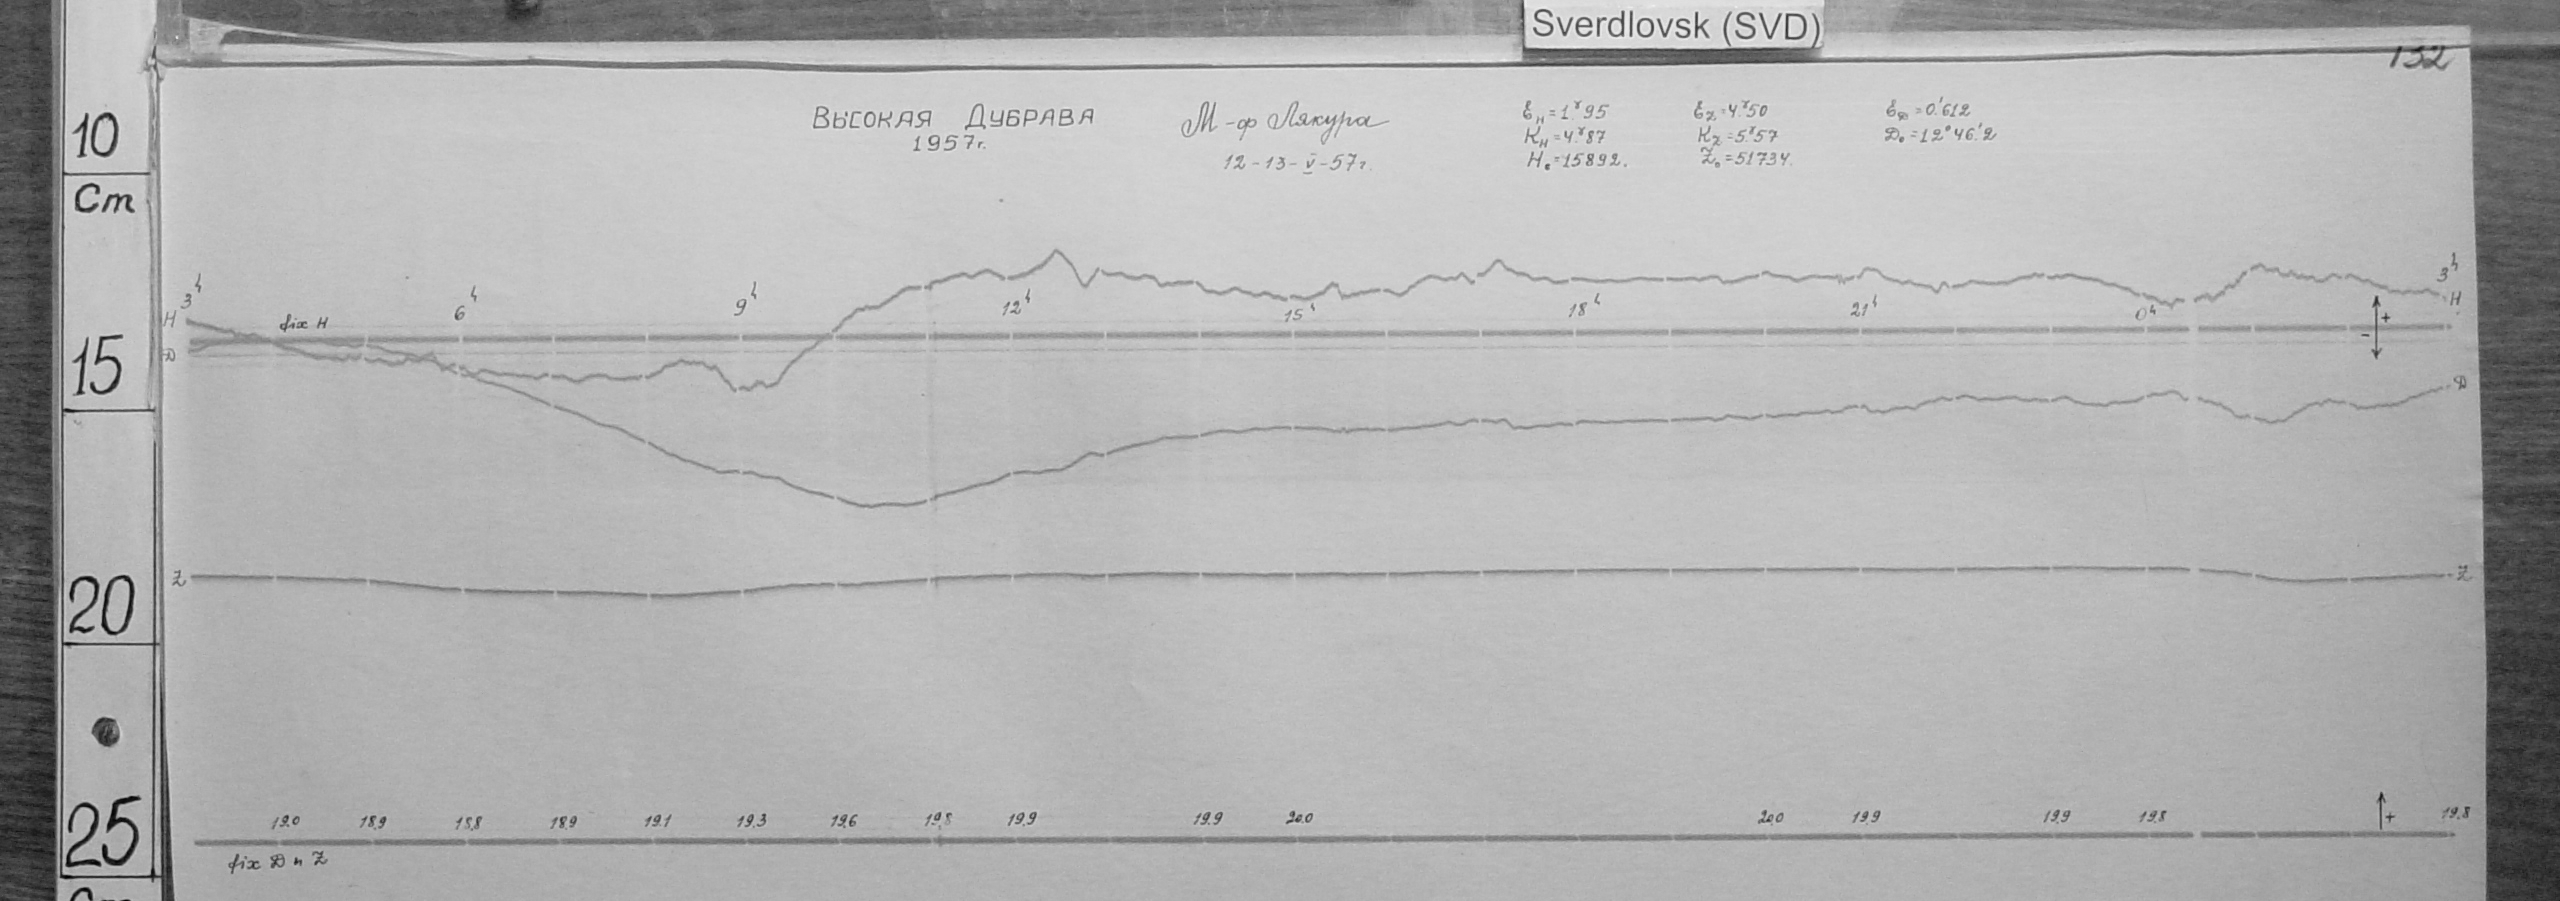 Sverdlovsk (SVD)
132
10
Cm
15
20
25
Cm
Высокая Дубрава
1957г.
М-ф Лякура
12-13-V-57г.
Ɛ_H=1^γ95
K_H=4^γ87
H₀=15892.
Ɛ_Z=4^γ50
K_Z=5^γ57
Z₀=51734.
Ɛ_D=0'.612
D₀=12°46'.2
3ʰ 6ʰ 9ʰ 12ʰ 15ʰ 18ʰ 21ʰ 0ʰ 3ʰ
H fix H H
+
-
D D
Z Z
19.0 18.9 18.8 18.9 19.1 19.3 19.6 19.8 19.9 19.9 20.0 20.0 19.9 19.9 19.8 19.8
+
fix D и Z